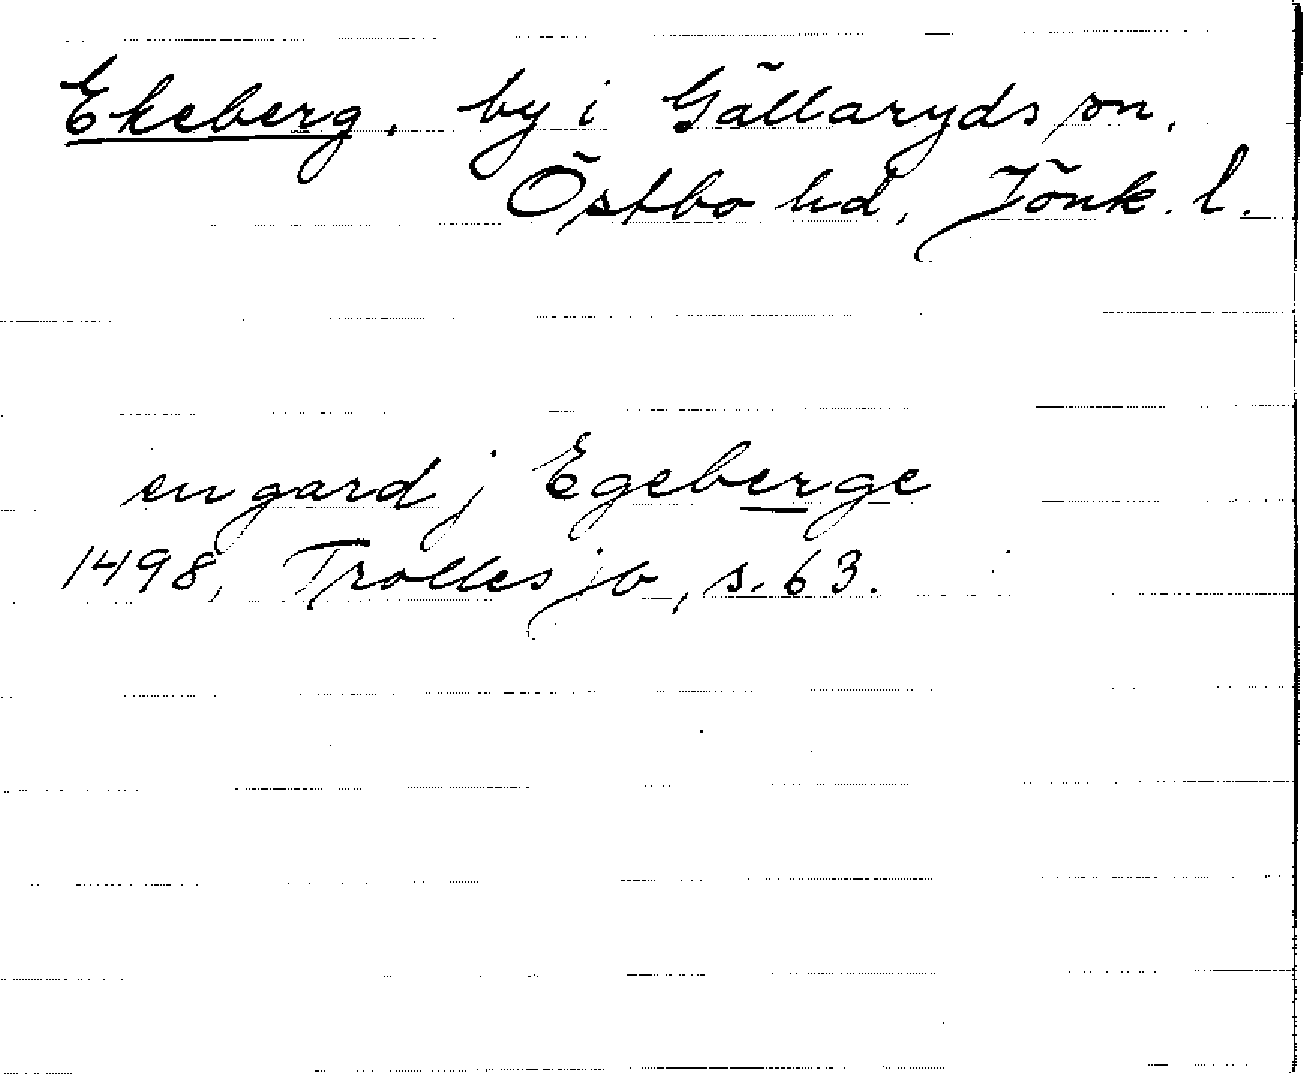 Ekeberg, by i Gällaryds sn,
Östbo hd, Jönk. l.
en gard j Egeberge
1498, Trolles jb, s. 63.